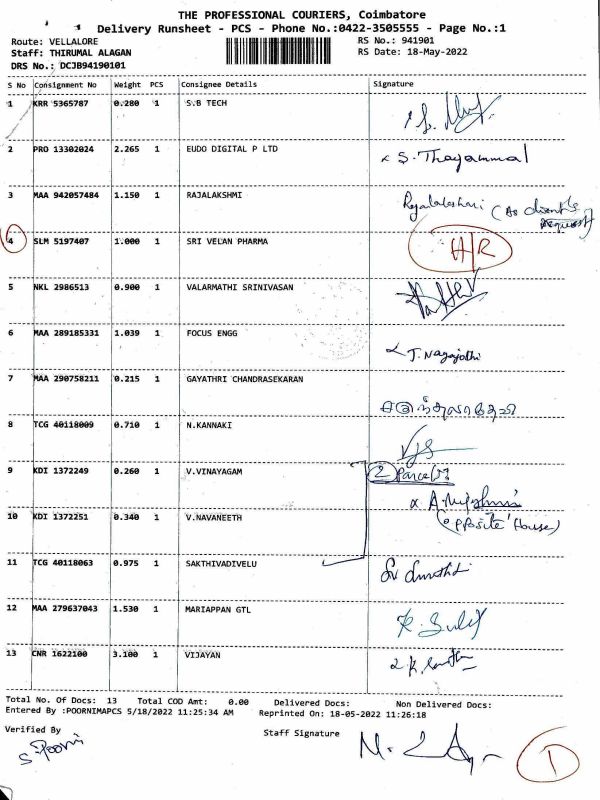 THE PROFESSIONAL COURIERS, Coimbatore
Delivery Runsheet - PCS - Phone No.:0422-3505555 - Page No.:1
Route: VELLALORE RS No.: 941901
Staff: THIRUMAL ALAGAN RS Date: 18-May-2022
DRS No.: DCJB94190101
S No Consignment No Weight PCS Consignee Details Signature
1 KRR 5365787 0.280 1 S.B TECH
2 PRO 13302024 2.265 1 EUDO DIGITAL P LTD S. Thayammal
3 MAA 942057484 1.150 1 RAJALAKSHMI Rajalakshmi (As client's Request)
4 SLM 5197407 1.000 1 SRI VELAN PHARMA H/R
5 NKL 2986513 0.900 1 VALARMATHI SRINIVASAN
6 MAA 289185331 1.039 1 FOCUS ENGG J. Nagajothi
7 MAA 290758211 0.215 1 GAYATHRI CHANDRASEKARAN
8 TCG 40118009 0.710 1 N.KANNAKI
9 KDI 1372249 0.260 1 V.VINAYAGAM 2 Parcels
10 KDI 1372251 0.340 1 V.NAVANEETH (opposite House)
11 TCG 40118063 0.975 1 SAKTHIVADIVELU
12 MAA 279637043 1.530 1 MARIAPPAN GTL
13 CNR 1622100 3.100 1 VIJAYAN
Total No. Of Docs: 13 Total COD Amt: 0.00 Delivered Docs: Non Delivered Docs:
Entered By :POORNIMAPCS 5/18/2022 11:25:34 AM Reprinted On: 18-05-2022 11:26:18
Verified By Staff Signature
S. Poorni
1